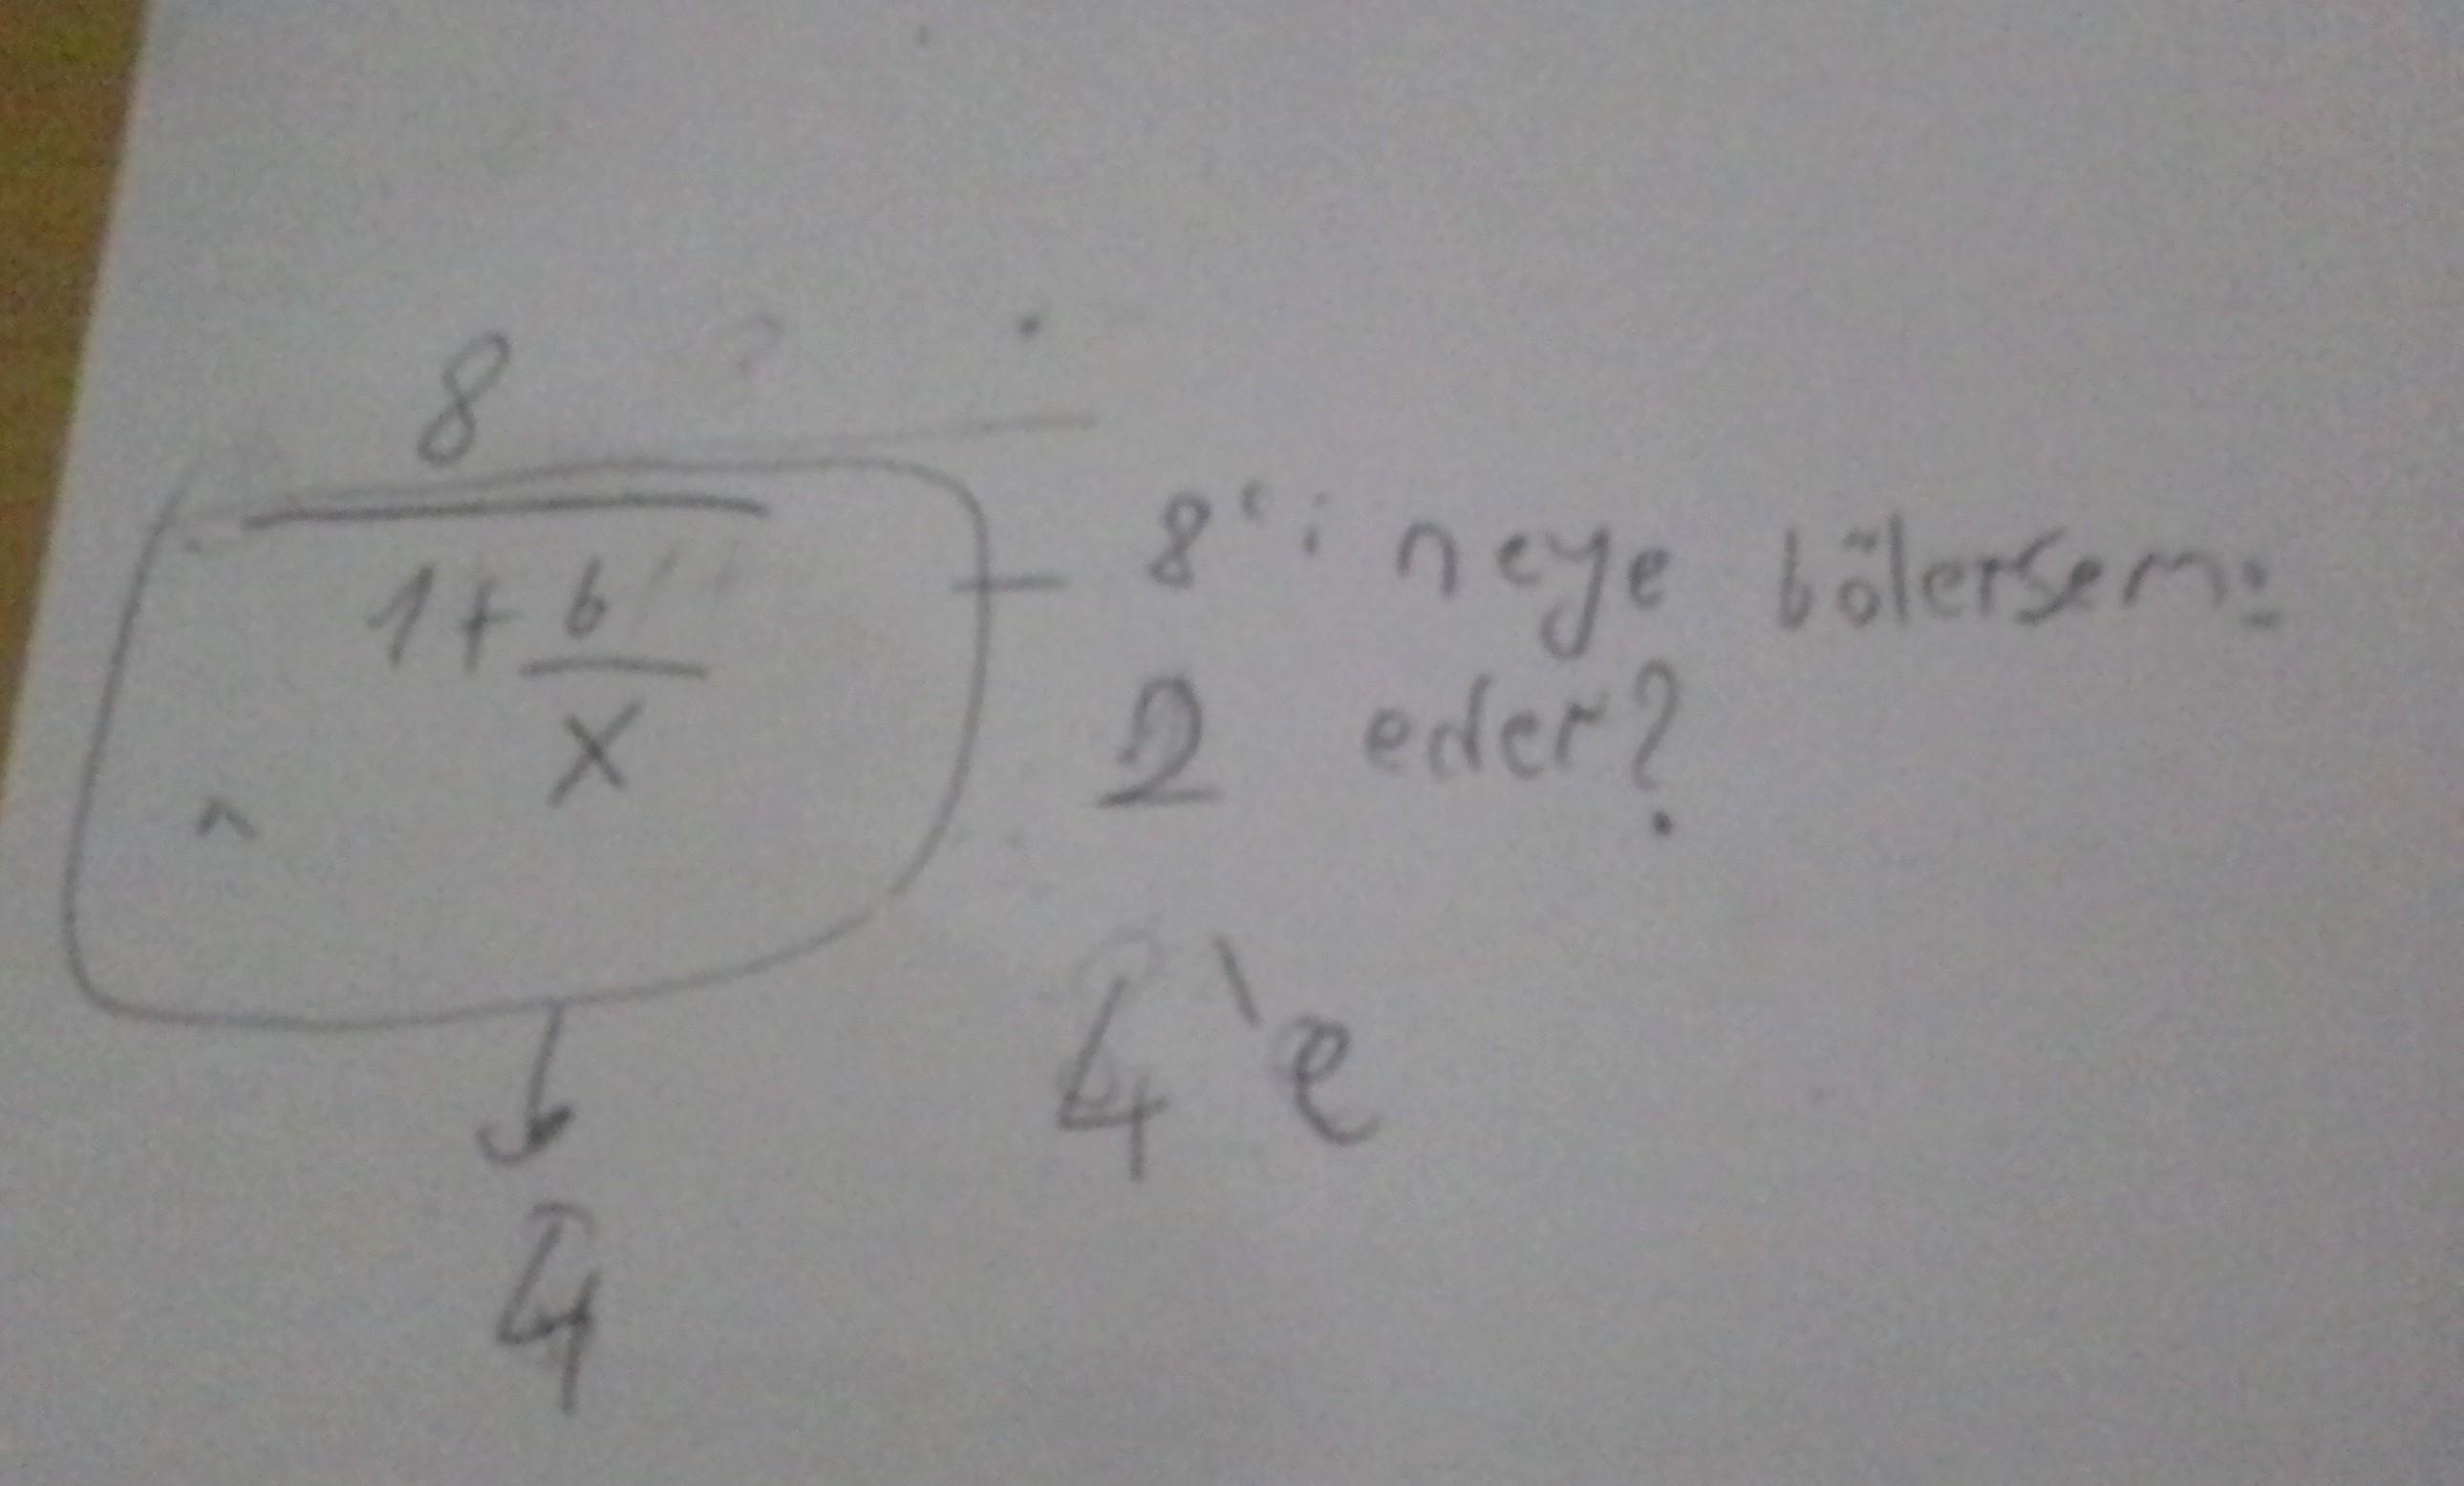 8
1+6
x
8'i neye bölersem:
2 eder?
4'e
4